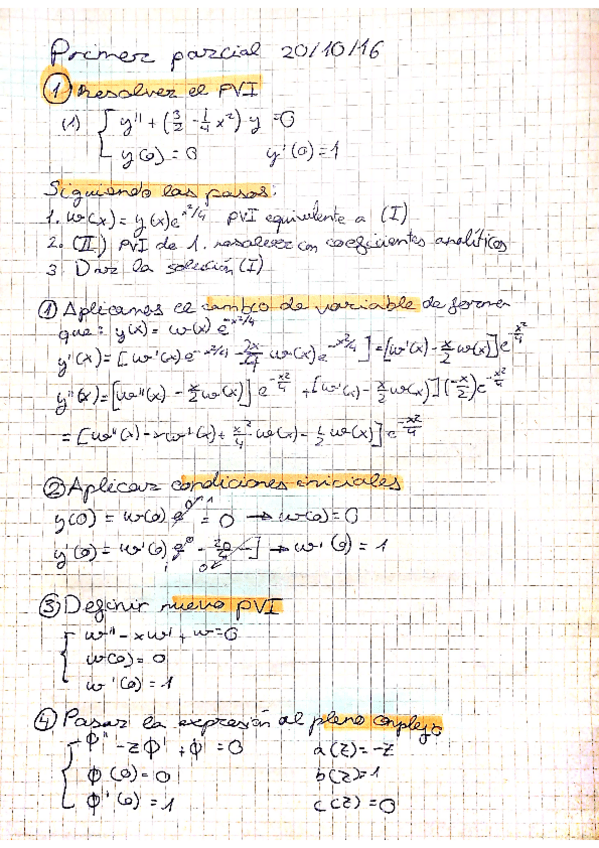 Primer parcial 20/10/16
① Resolver el PVI
(1) { y'' + (3/2 - 1/4 x²) y = 0
y(0) = 0 y'(0) = 1
Siguiendo los pasos:
1. w(x) = y(x)e^{x²/4} PVI equivalente a (I)
2. (II) PVI de 1. resolver con coeficientes analíticos
3 Dar la solución (I)
① Aplicamos el cambio de variable de forma
que: y(x) = w(x) e^{-x²/4}
y'(x) = [w'(x)e^{-x²/4} - 2x/4 w(x)e^{-x²/4}] = [w'(x) - x/2 w(x)] e^{-x²/4}
y''(x) = [w''(x) - x/2 w(x)] e^{-x²/4} + [w'(x) - x/2 w(x)] (-x/2) e^{-x²/4}
= [w''(x) - xw'(x) + x²/4 w(x) - 1/2 w(x)] e^{-x²/4}
② Aplicar condiciones iniciales
y(0) = w(0) e^0 = 0 → w(0) = 0
y'(0) = w'(0) e^0 → w'(0) = 1
③ Definir nuevo PVI
{ w'' - xw' + w = 0
w(0) = 0
w'(0) = 1
④ Pasar la expresión al plano complejo
{ ϕ'' - zϕ' + ϕ = 0 a(z) = -z
ϕ(0) = 0 b(z) = 1
ϕ'(0) = 1 c(z) = 0